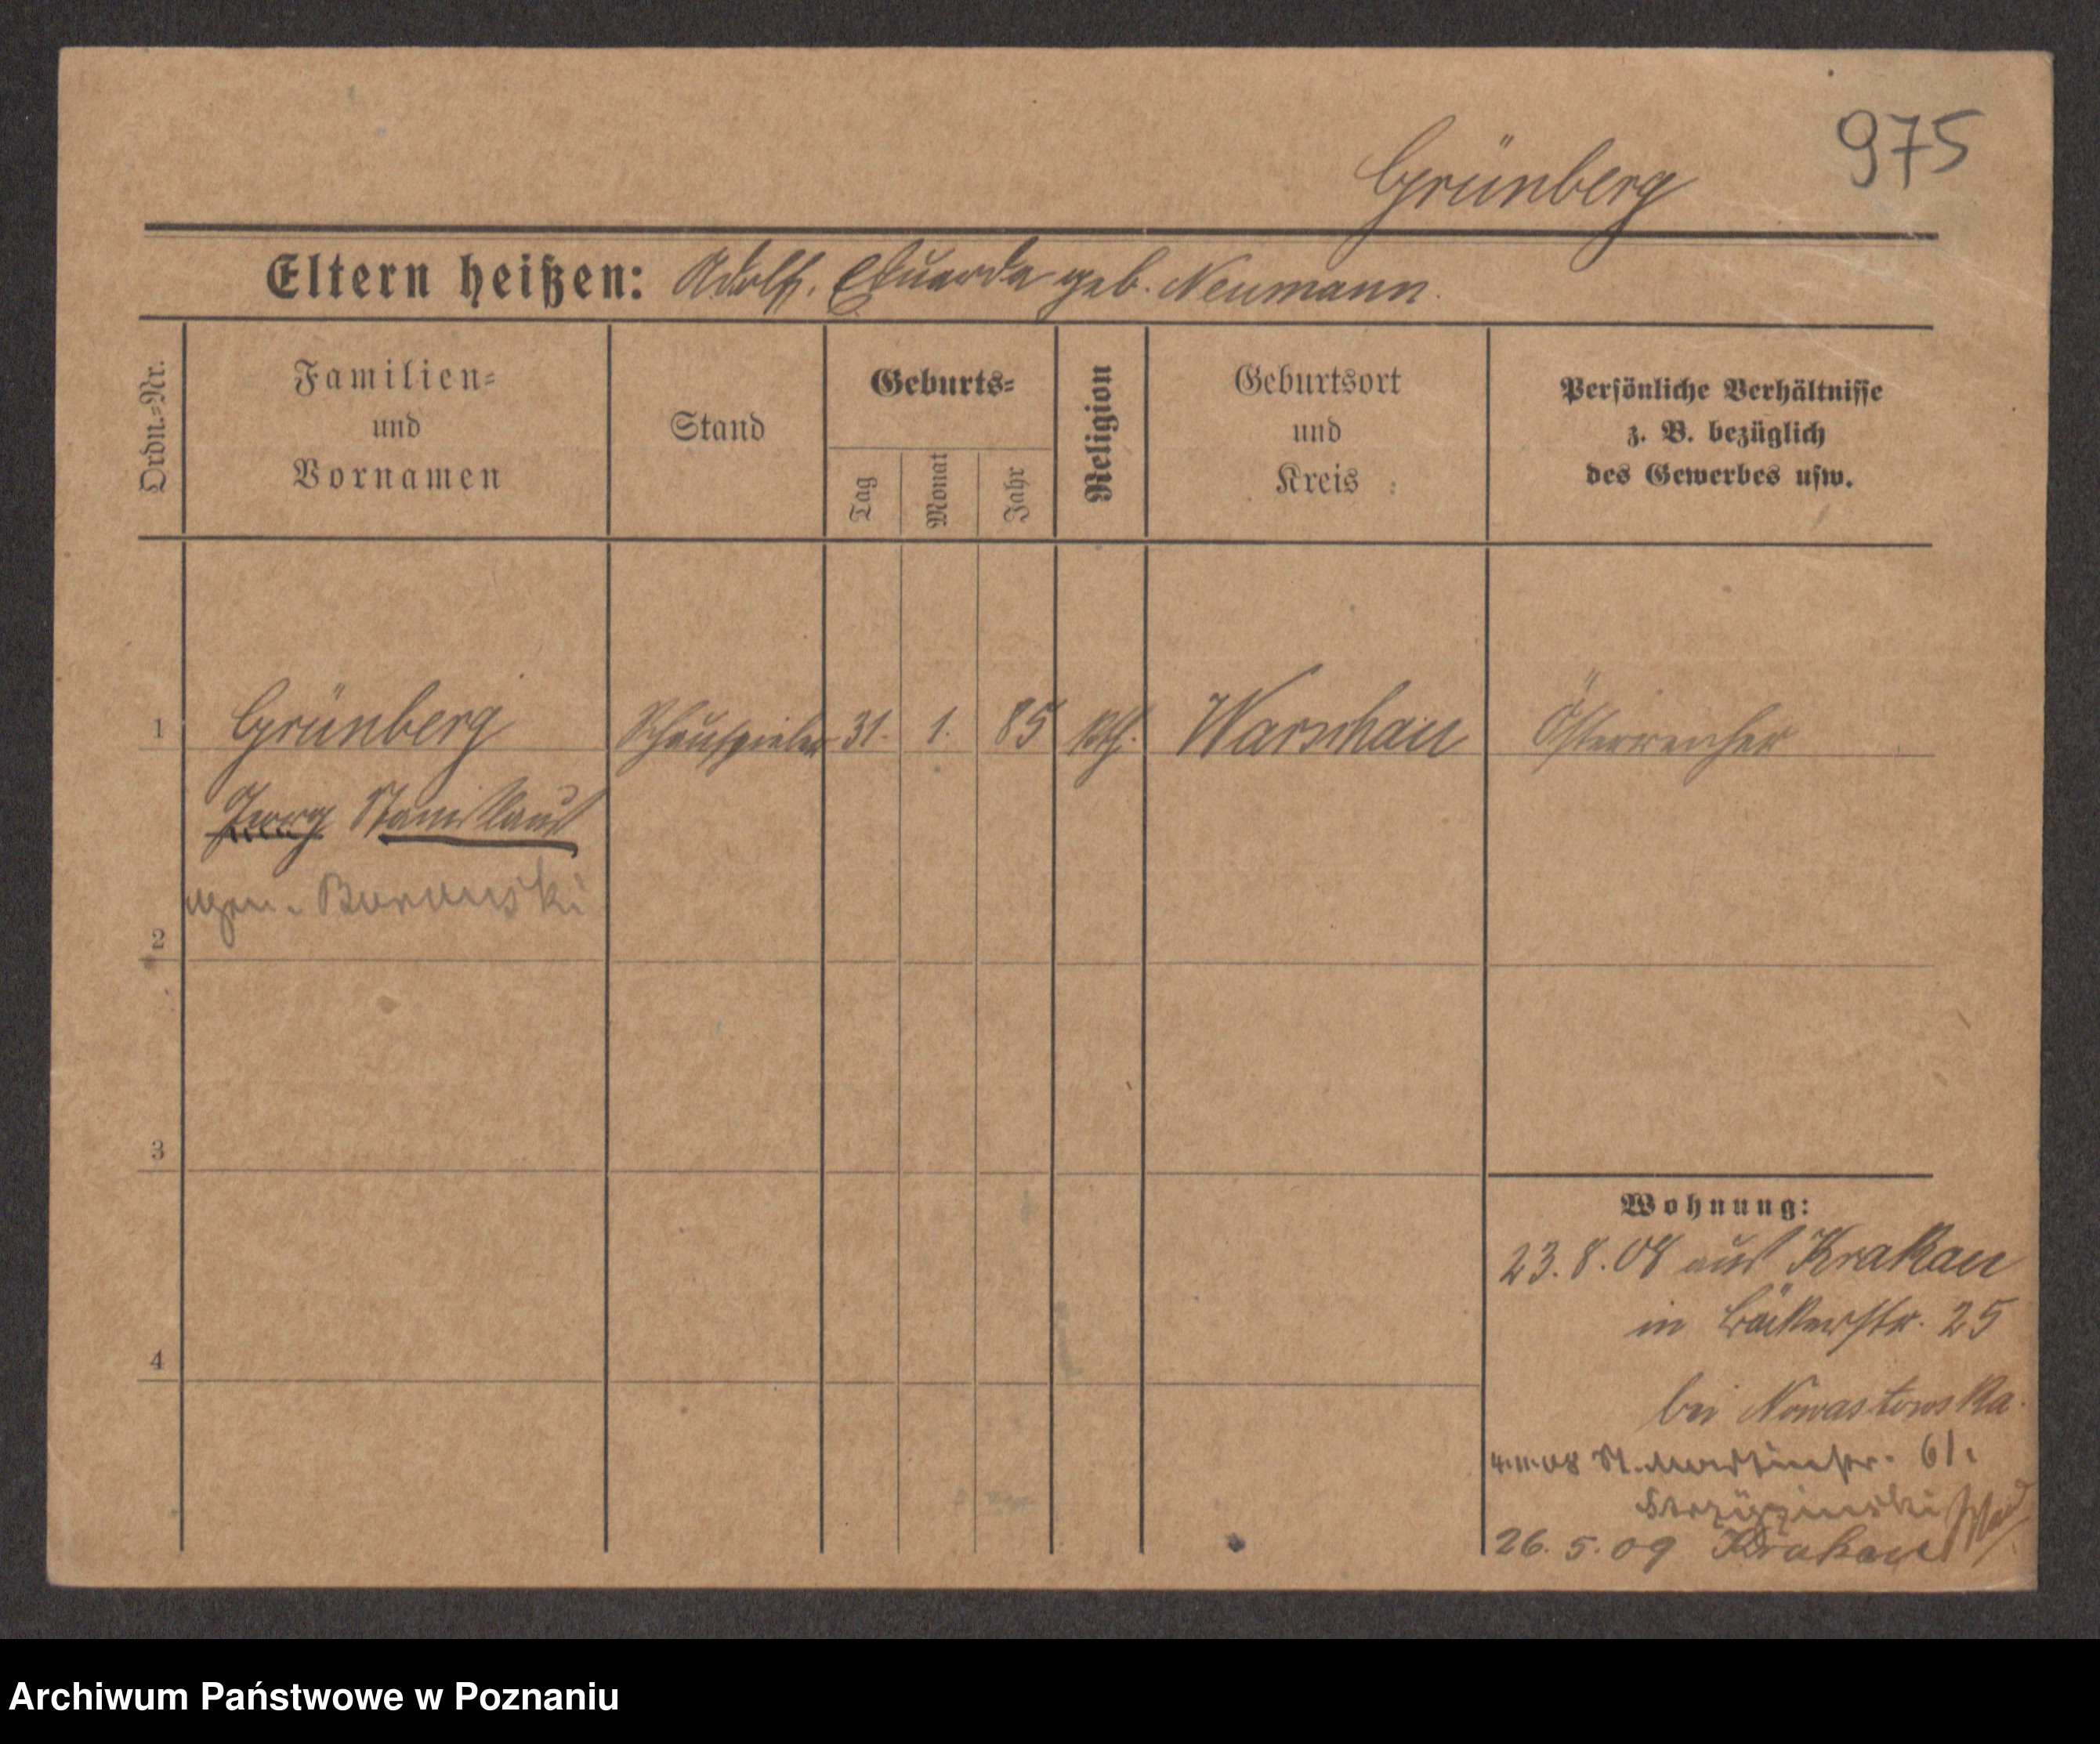 975
Grünberg
Eltern heißen: Adolf, Eduarda geb. Neumann.
Ordn.=Nr.
Familien=
und
Vornamen
Stand
Geburts=
Tag
Monat
Jahr
Religion
Geburtsort
und
Kreis
Persönliche Verhältnisse
z. B. bezüglich
des Gewerbes usw.
1 Grünberg Schauspieler 31. 1. 85 kth. Warschau Österreicher
Georg Stanislaus
2
3
4
Wohnung:
23. 8. 08 aus Krakau
in Bäckerstr. 25
bei Nowastowska.
4.11.08 St. Martinstr. 61.
26. 5. 09 Krakau
Archiwum Państwowe w Poznaniu